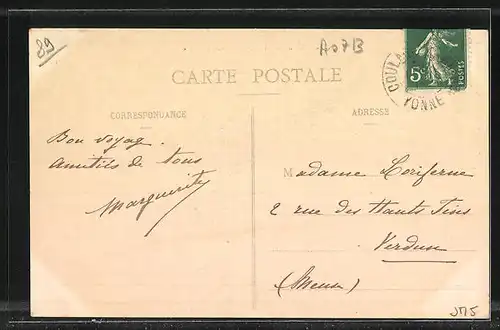 89
A07B
CARTE POSTALE
CORRESPONDANCE
ADRESSE
5c
POSTES
COUL
YONNE
Bon voyage.
Amitiés de tous
Marguerite
Madame Loriferne
2 rue des Hauts Fins
Verdun
(Meuse)
JM5